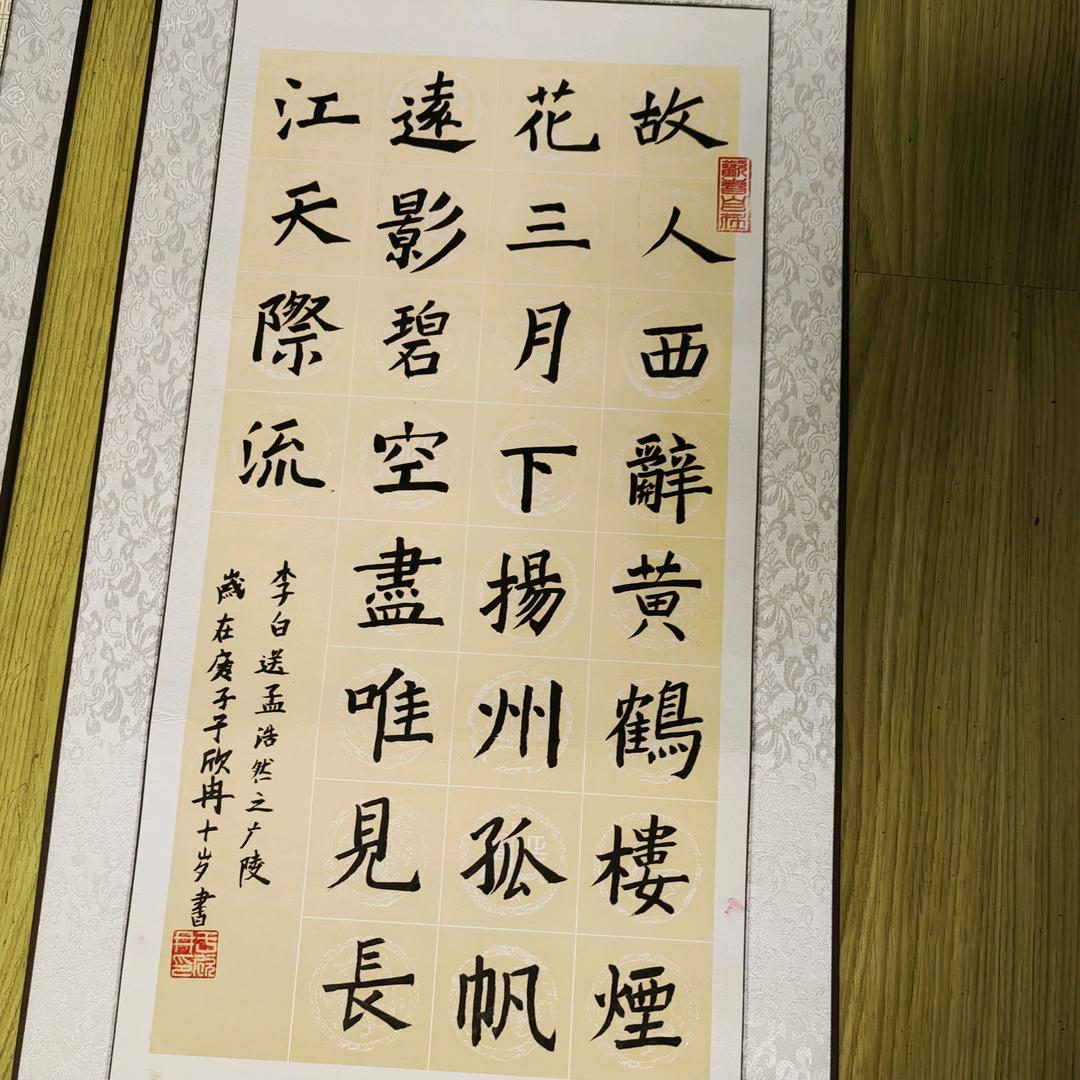 故人西辭黄鶴樓煙
花三月下揚州孤帆
遠影碧空盡唯見長
江天際流
李白送孟浩然之广陵
歲在庚子于欣冉十岁書